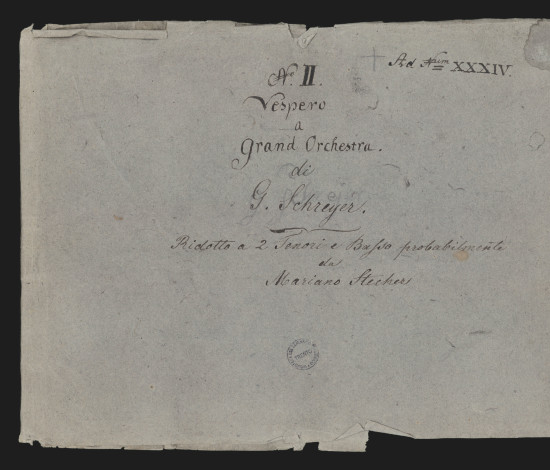 Ad Num XXXIV.
N. II.
Vespero
a
Grand Orchestra.
di
G. Schreyer.
Ridotto a 2 Tenori e Basso probabilmente
da
Mariano Stecher